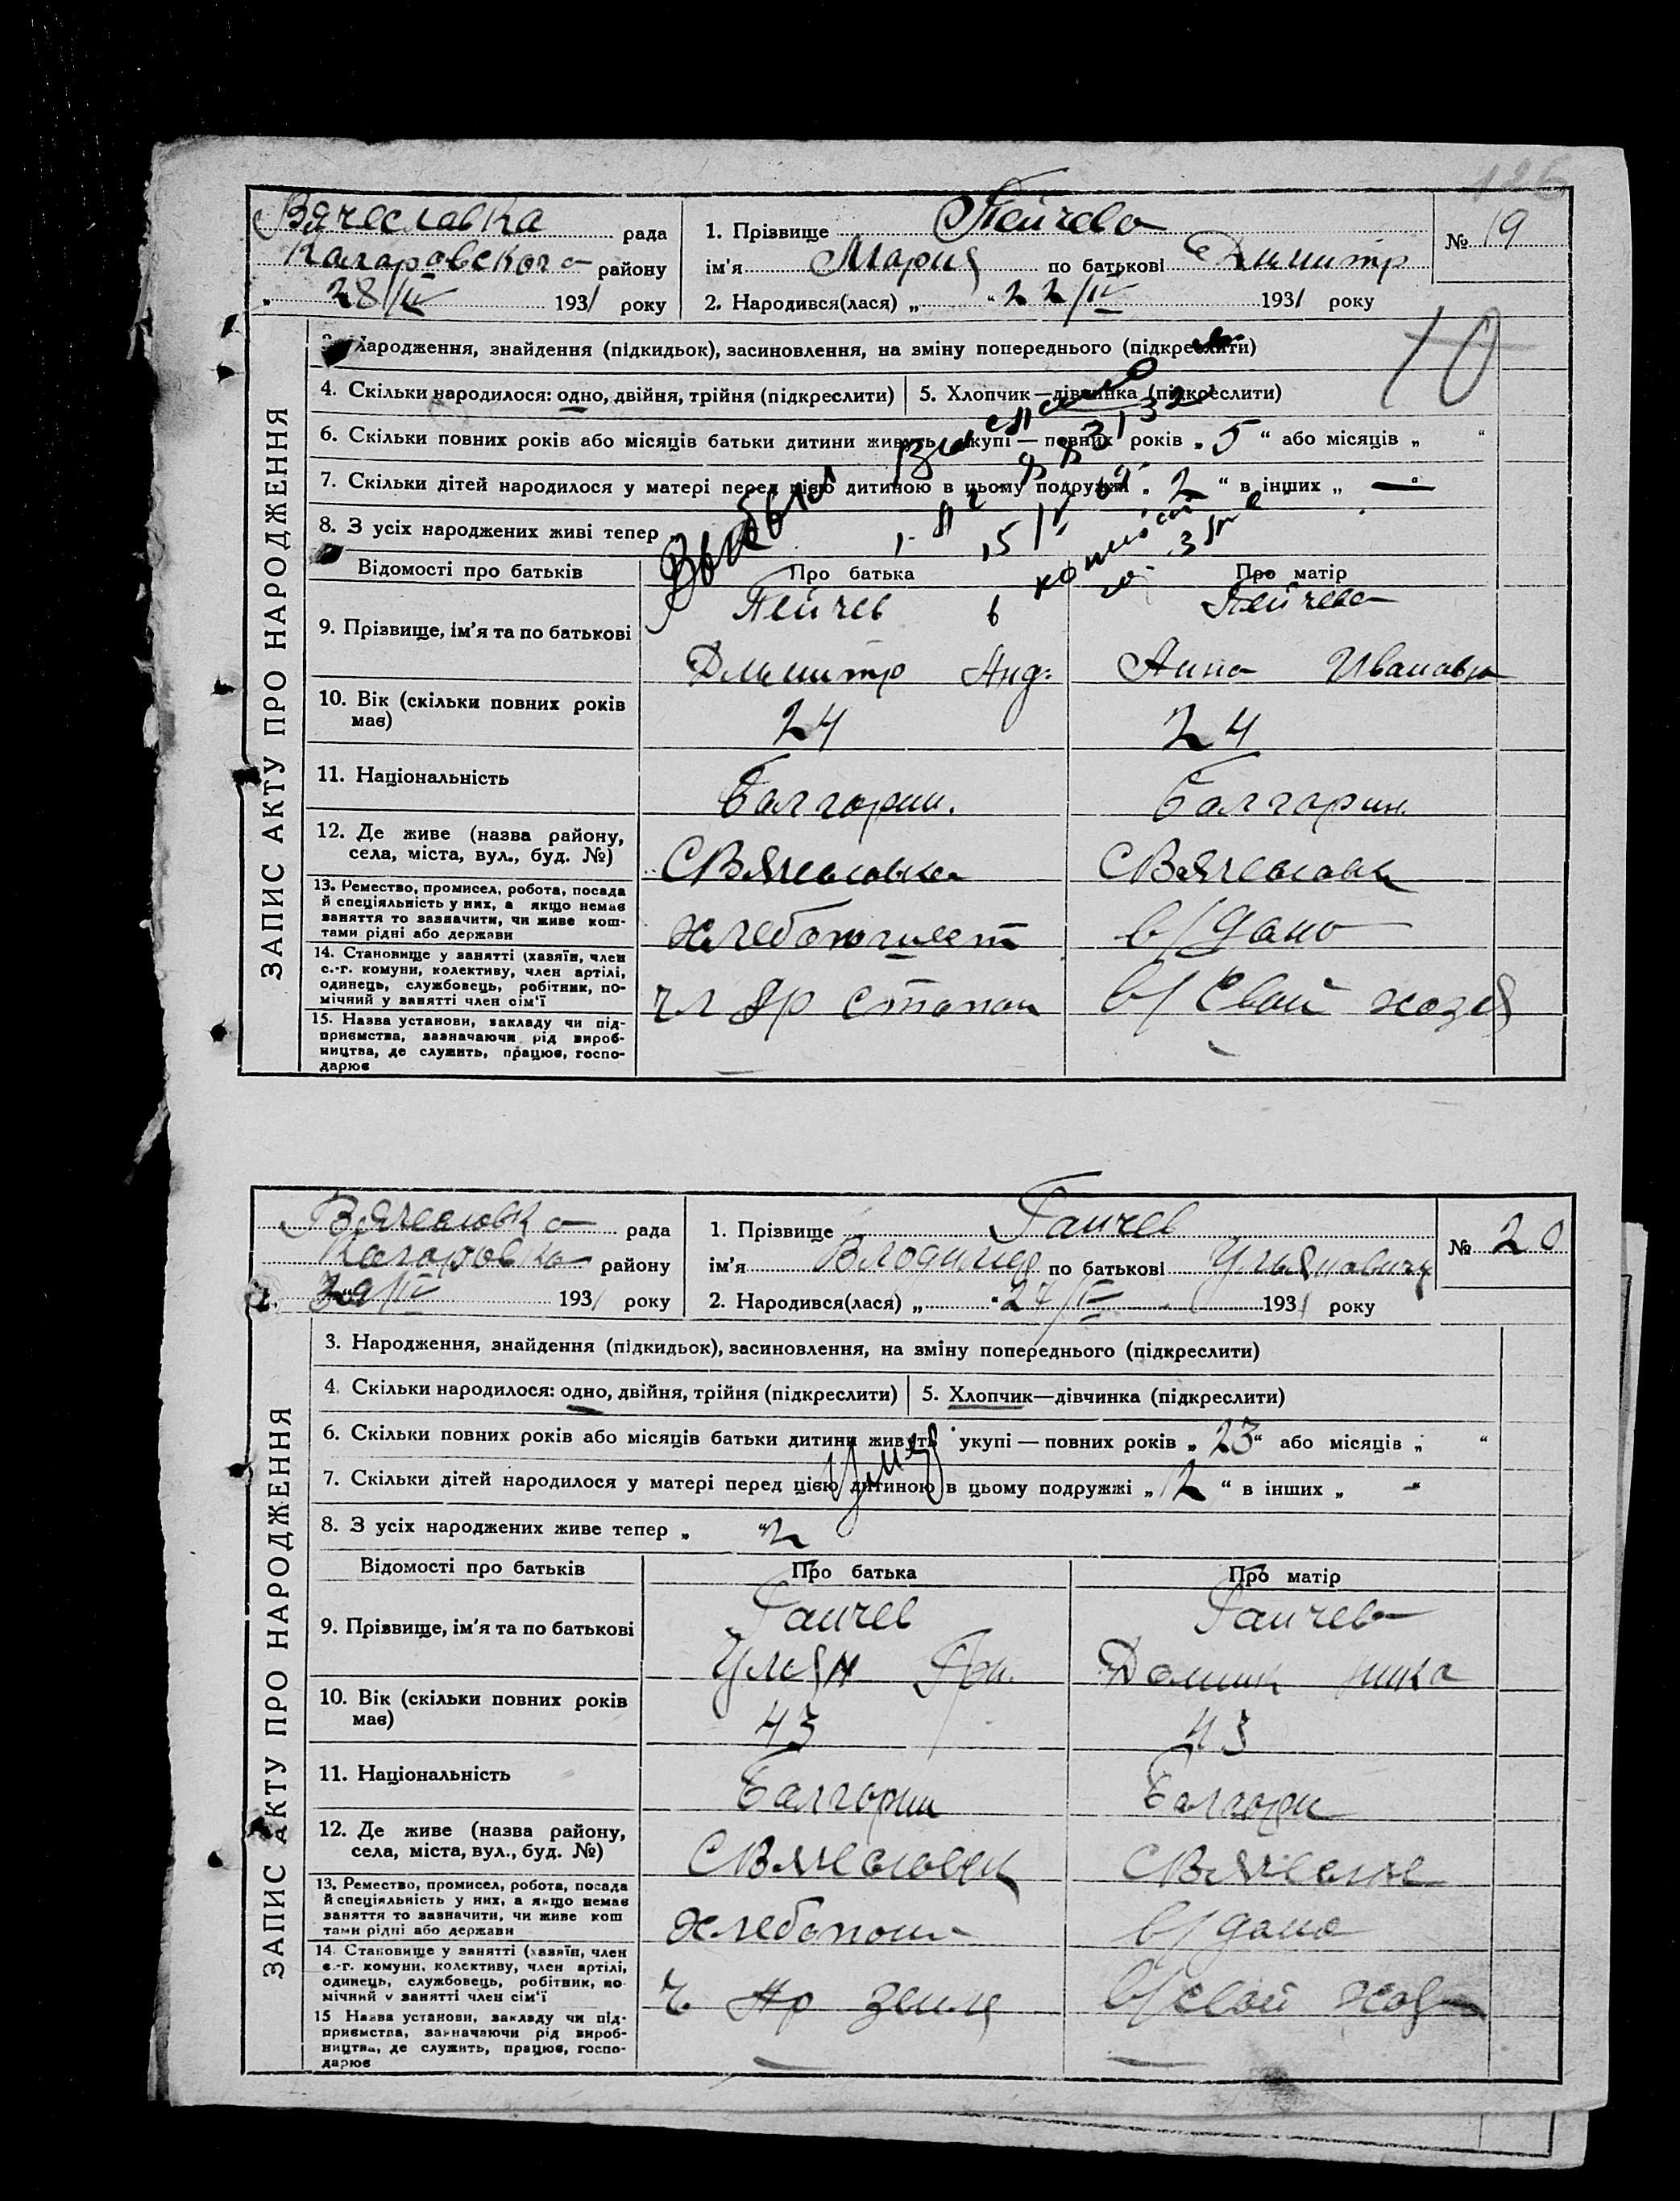 126
Вячеславка рада
Каларовского району
„ 28/IV 1931 року
1. Прізвище Пейчева
ім'я Мария по батькові Димитр
2. Народився(лася) „ “ 22/IV 1931 року
№ 19
10
ЗАПИС АКТУ ПРО НАРОДЖЕННЯ
Народження, знайдення (підкидьок), засиновлення, на зміну попереднього (підкреслити)
4. Скільки народилося: одно, двійня, трійня (підкреслити)
5. Хлопчик—дівчинка (підкреслити)
6. Скільки повних років або місяців батьки дитини живуть укупі — повних років „ 5 “ або місяців „ “
7. Скільки дітей народилося у матері перед цією дитиною в цьому подружжі „ 2 “ в інших „ — “
8. З усіх народжених живі тепер „
Відомості про батьків Про батька Про матір
9. Прізвище, ім'я та по батькові
Пейчев
Димитр Анд:
Пейчева
Анна Ивановна
10. Вік (скільки повних років має)
24 24
11. Національність
Балгарин. Балгарин.
12. Де живе (назва району, села, міста, вул., буд. №)
СВячесловка СВячеславк
13. Ремество, промисел, робота, посада
й спеціяльність у них, а якщо немає
заняття то зазначити, чи живе кош-
тами рідні або держави
в/дано
14. Становище у занятті (хазяїн, член
с.-г. комуни, колективу, член артілі,
одинець, службовець, робітник, по-
мічний у занятті член сім'ї
чл в/ свой хозя
15. Назва установи, закладу чи під-
приємства, зазначаючи рід вироб-
ництва, де служить, працює, госпо-
дарює
— —
Вячесловка рада
Каларовка району
1931 року
1. Прізвище Ганчев
ім'я Владимир по батькові Ульяновичу
2. Народився(лася) „ “ 27/IV 1931 року
№ 20
ЗАПИС АКТУ ПРО НАРОДЖЕННЯ
3. Народження, знайдення (підкидьок), засиновлення, на зміну попереднього (підкреслити)
4. Скільки народилося: одно, двійня, трійня (підкреслити)
5. Хлопчик—дівчинка (підкреслити)
6. Скільки повних років або місяців батьки дитини живуть укупі — повних років „ 23 “ або місяців „ “
7. Скільки дітей народилося у матері перед цією дитиною в цьому подружжі „ “ в інших „ — “
8. З усіх народжених живе тепер „ “ 2
Відомості про батьків Про батька Про матір
9. Прізвище, ім'я та по батькові
Ганчев
Улян
Ганчева
10. Вік (скільки повних років має)
43 43
11. Національність
Балгарин Балгари
12. Де живе (назва району, села, міста, вул., буд. №)
13. Ремество, промисел, робота, посада
й спеціяльність у них, а якщо немає
заняття то зазначити, чи живе кош
тами рідні або держави
хлебопаш в/дано
14. Становище у занятті (хазяїн, член
с.-г. комуни, колективу, член артілі,
одинець, службовець, робітник, по-
мічний у занятті член сім'ї
ч. в/свой
15 Назва установи, закладу чи під-
приємства, зазначаючи рід вироб-
ництва, де служить, працює, госпо-
дарює
— —